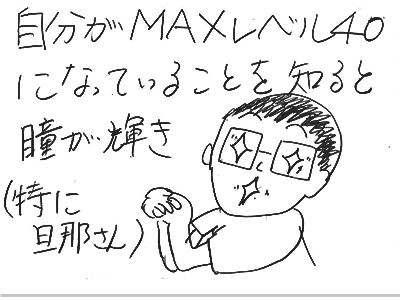 自分がMAXレベル40
になっていることを知ると
瞳が輝き
(特に
旦那さん)